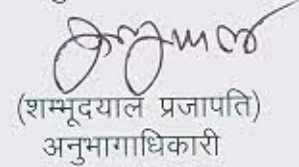 (शम्भूदयाल प्रजापति)
अनुभागाधिकारी